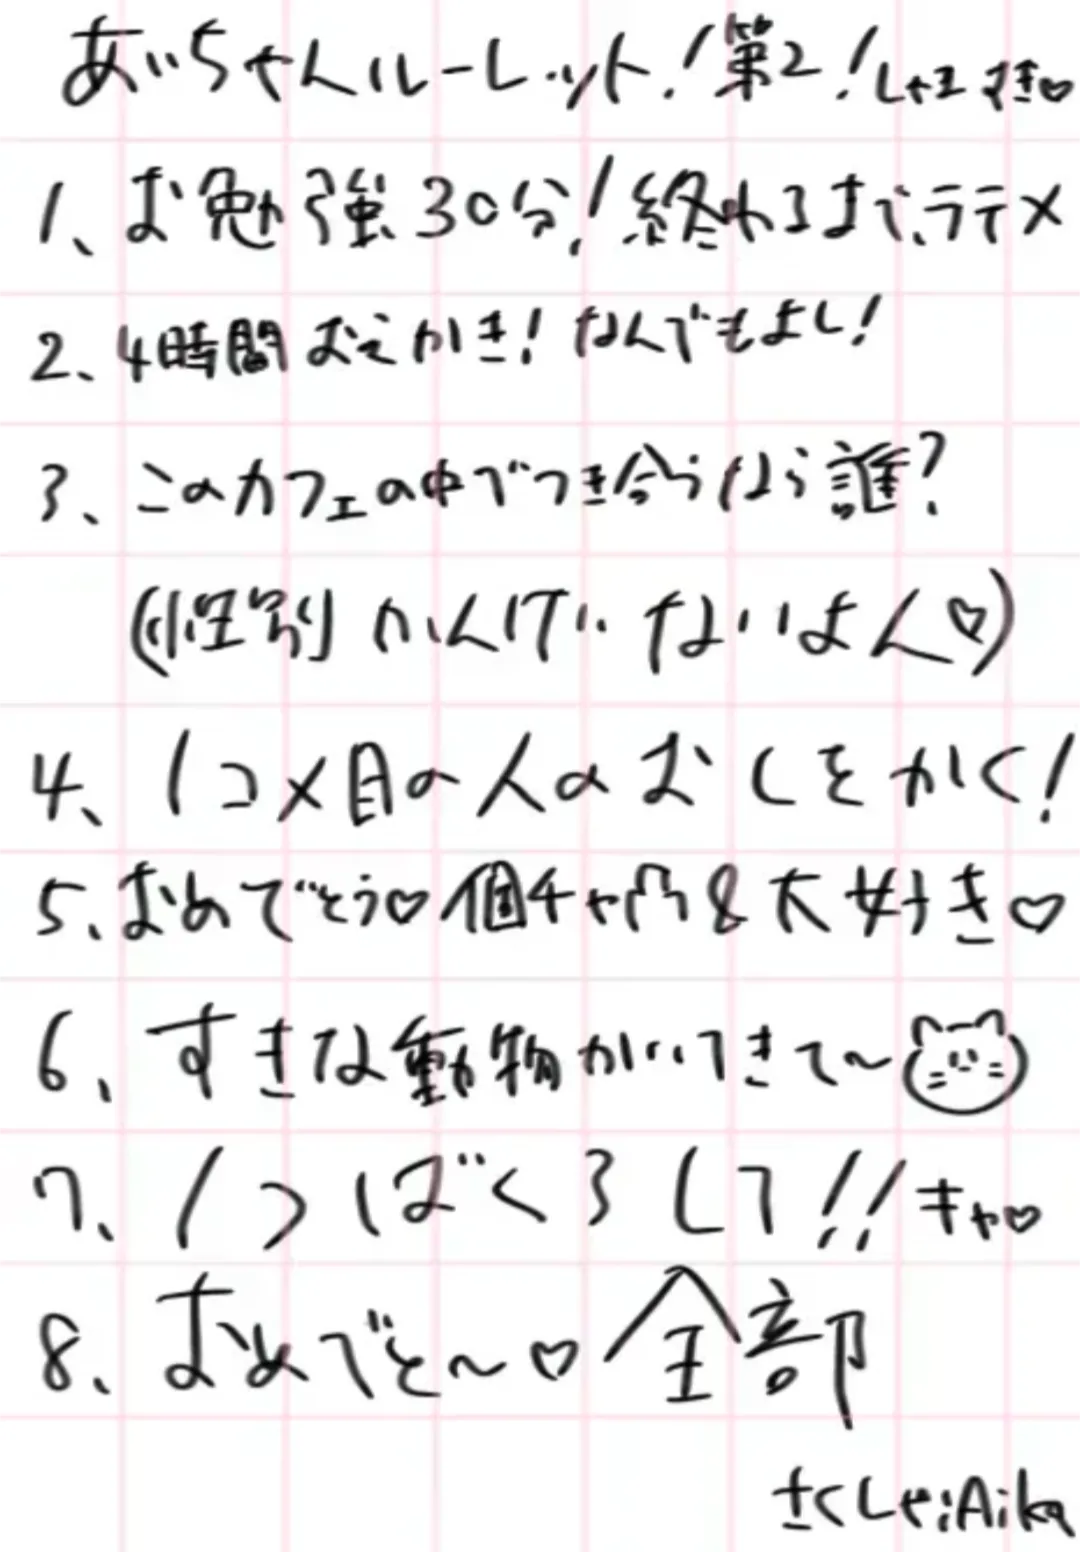 あいちゃんルーレット!第2!しゃますき♡
1、お勉強30分!終わるまで、ラテメ
2、4時間おえかき!なんでもよし!
3、このカフェの中でつき合うなら誰?
(性別かんけいないよん♡)
4、1コメ目の人のおしをかく!
5、おめでとう♡個チャ凸&大好き♡
6、すきな動物かいてきて~
7、1つばくろして!!キャ♡
8、おめでと~♡全部
さくしゃ:Aika